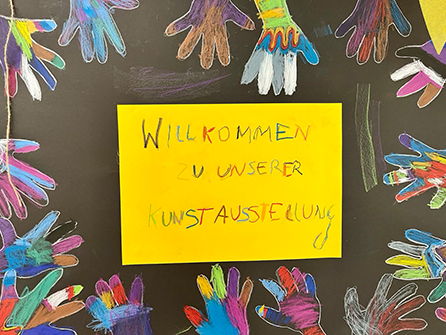 WILLKOMMEN
ZU UNSERER
KUNSTAUSSTELLUNG